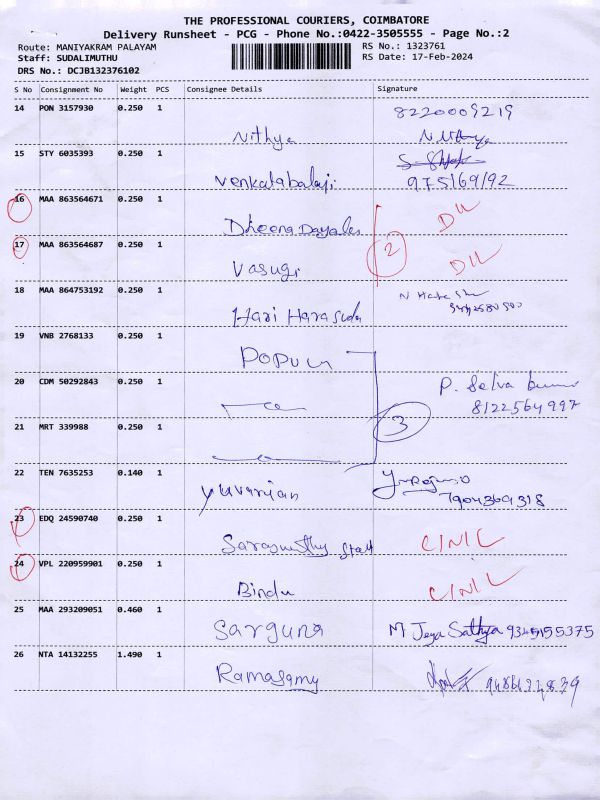 THE PROFESSIONAL COURIERS, COIMBATORE
Delivery Runsheet - PCG - Phone No.:0422-3505555 - Page No.:2
Route: MANIYAKRAM PALAYAM
RS No.: 1323761
Staff: SUDALIMUTHU
RS Date: 17-Feb-2024
DRS No.: DCJB132376102
S No Consignment No Weight PCS Consignee Details Signature
14 PON 3157930 0.250 1 Nithya 8220009219
15 STY 6035393 0.250 1 Venkatabalaji
16 MAA 863564671 0.250 1
17 MAA 863564687 0.250 1 Vasugi 2
18 MAA 864753192 0.250 1 Hari Harasuda
19 VNB 2768133 0.250 1
20 CDM 50292843 0.250 1 P. Selva
8122564997
21 MRT 339988 0.250 1 3
22 TEN 7635253 0.140 1
7904369318
23 EDQ 24590740 0.250 1
24 VPL 220959901 0.250 1 Bindu
25 MAA 293209051 0.460 1 Sarguna M Jega Sathya 9345155375
26 NTA 14132255 1.490 1 Ramasamy